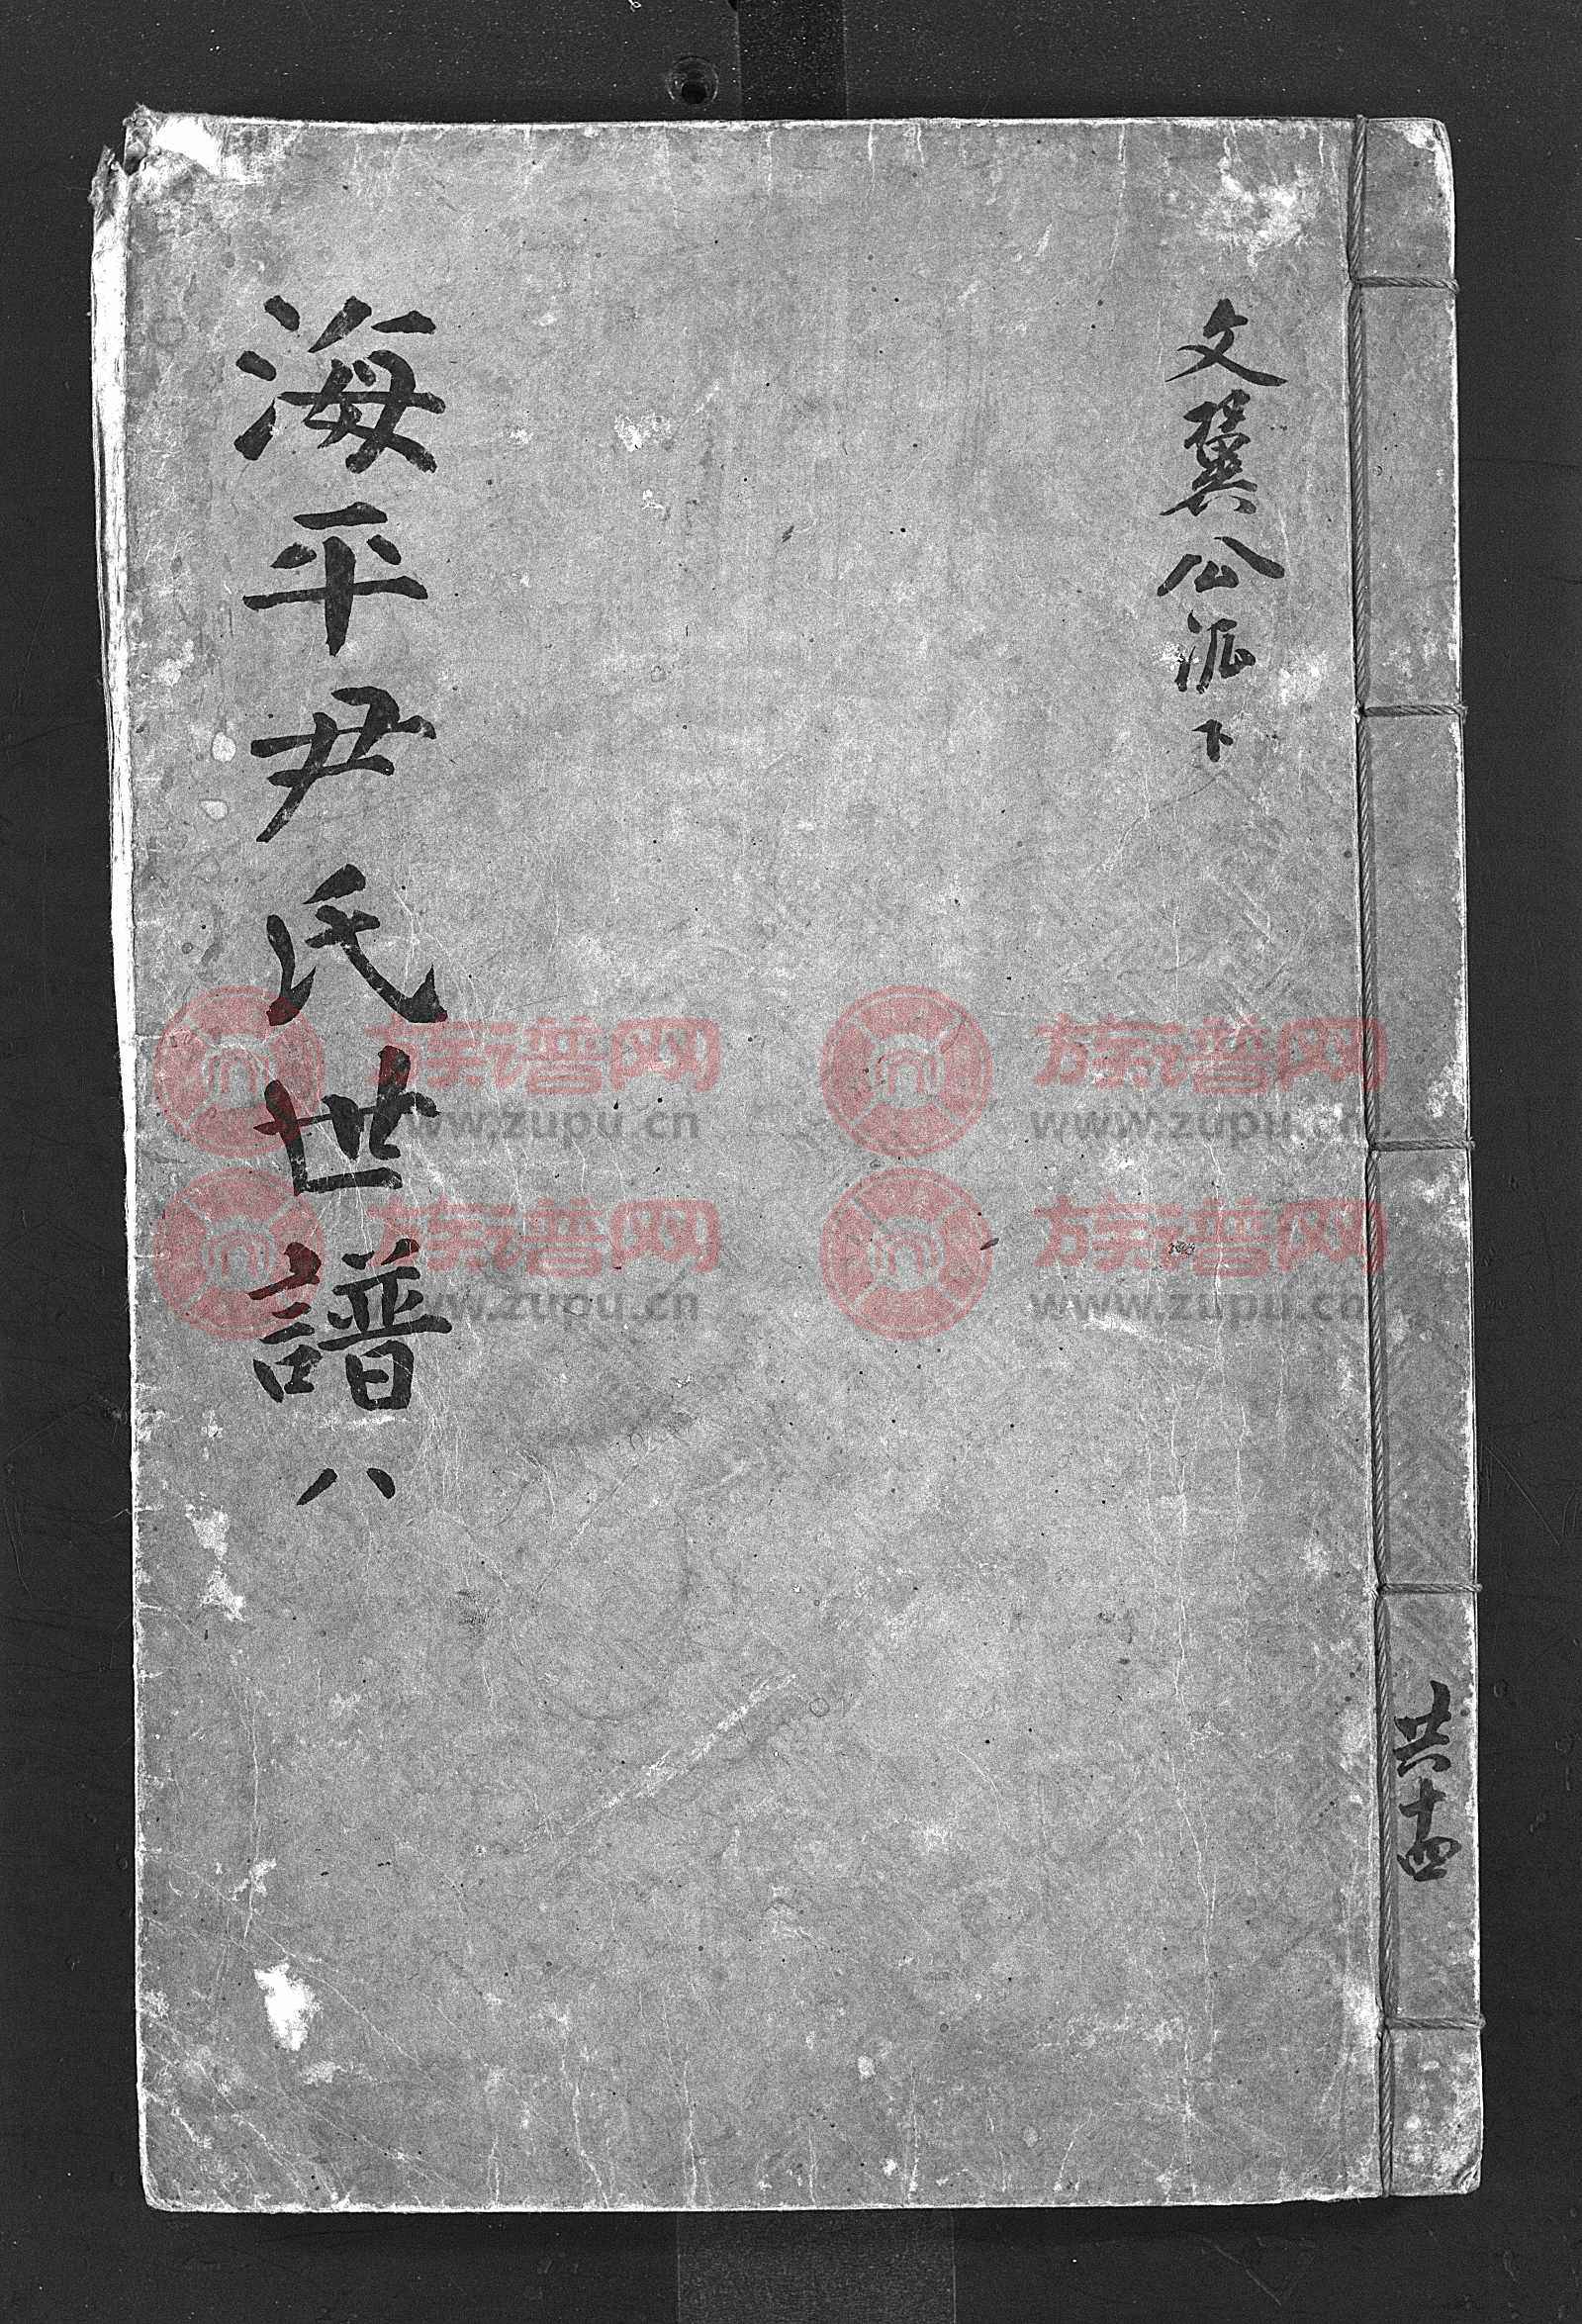 文翼公派下
海平尹氏世譜 八
共十四
族谱网
www.zupu.cn
族谱网
www.zupu.cn
族谱网
www.zupu.cn
族谱网
www.zupu.cn